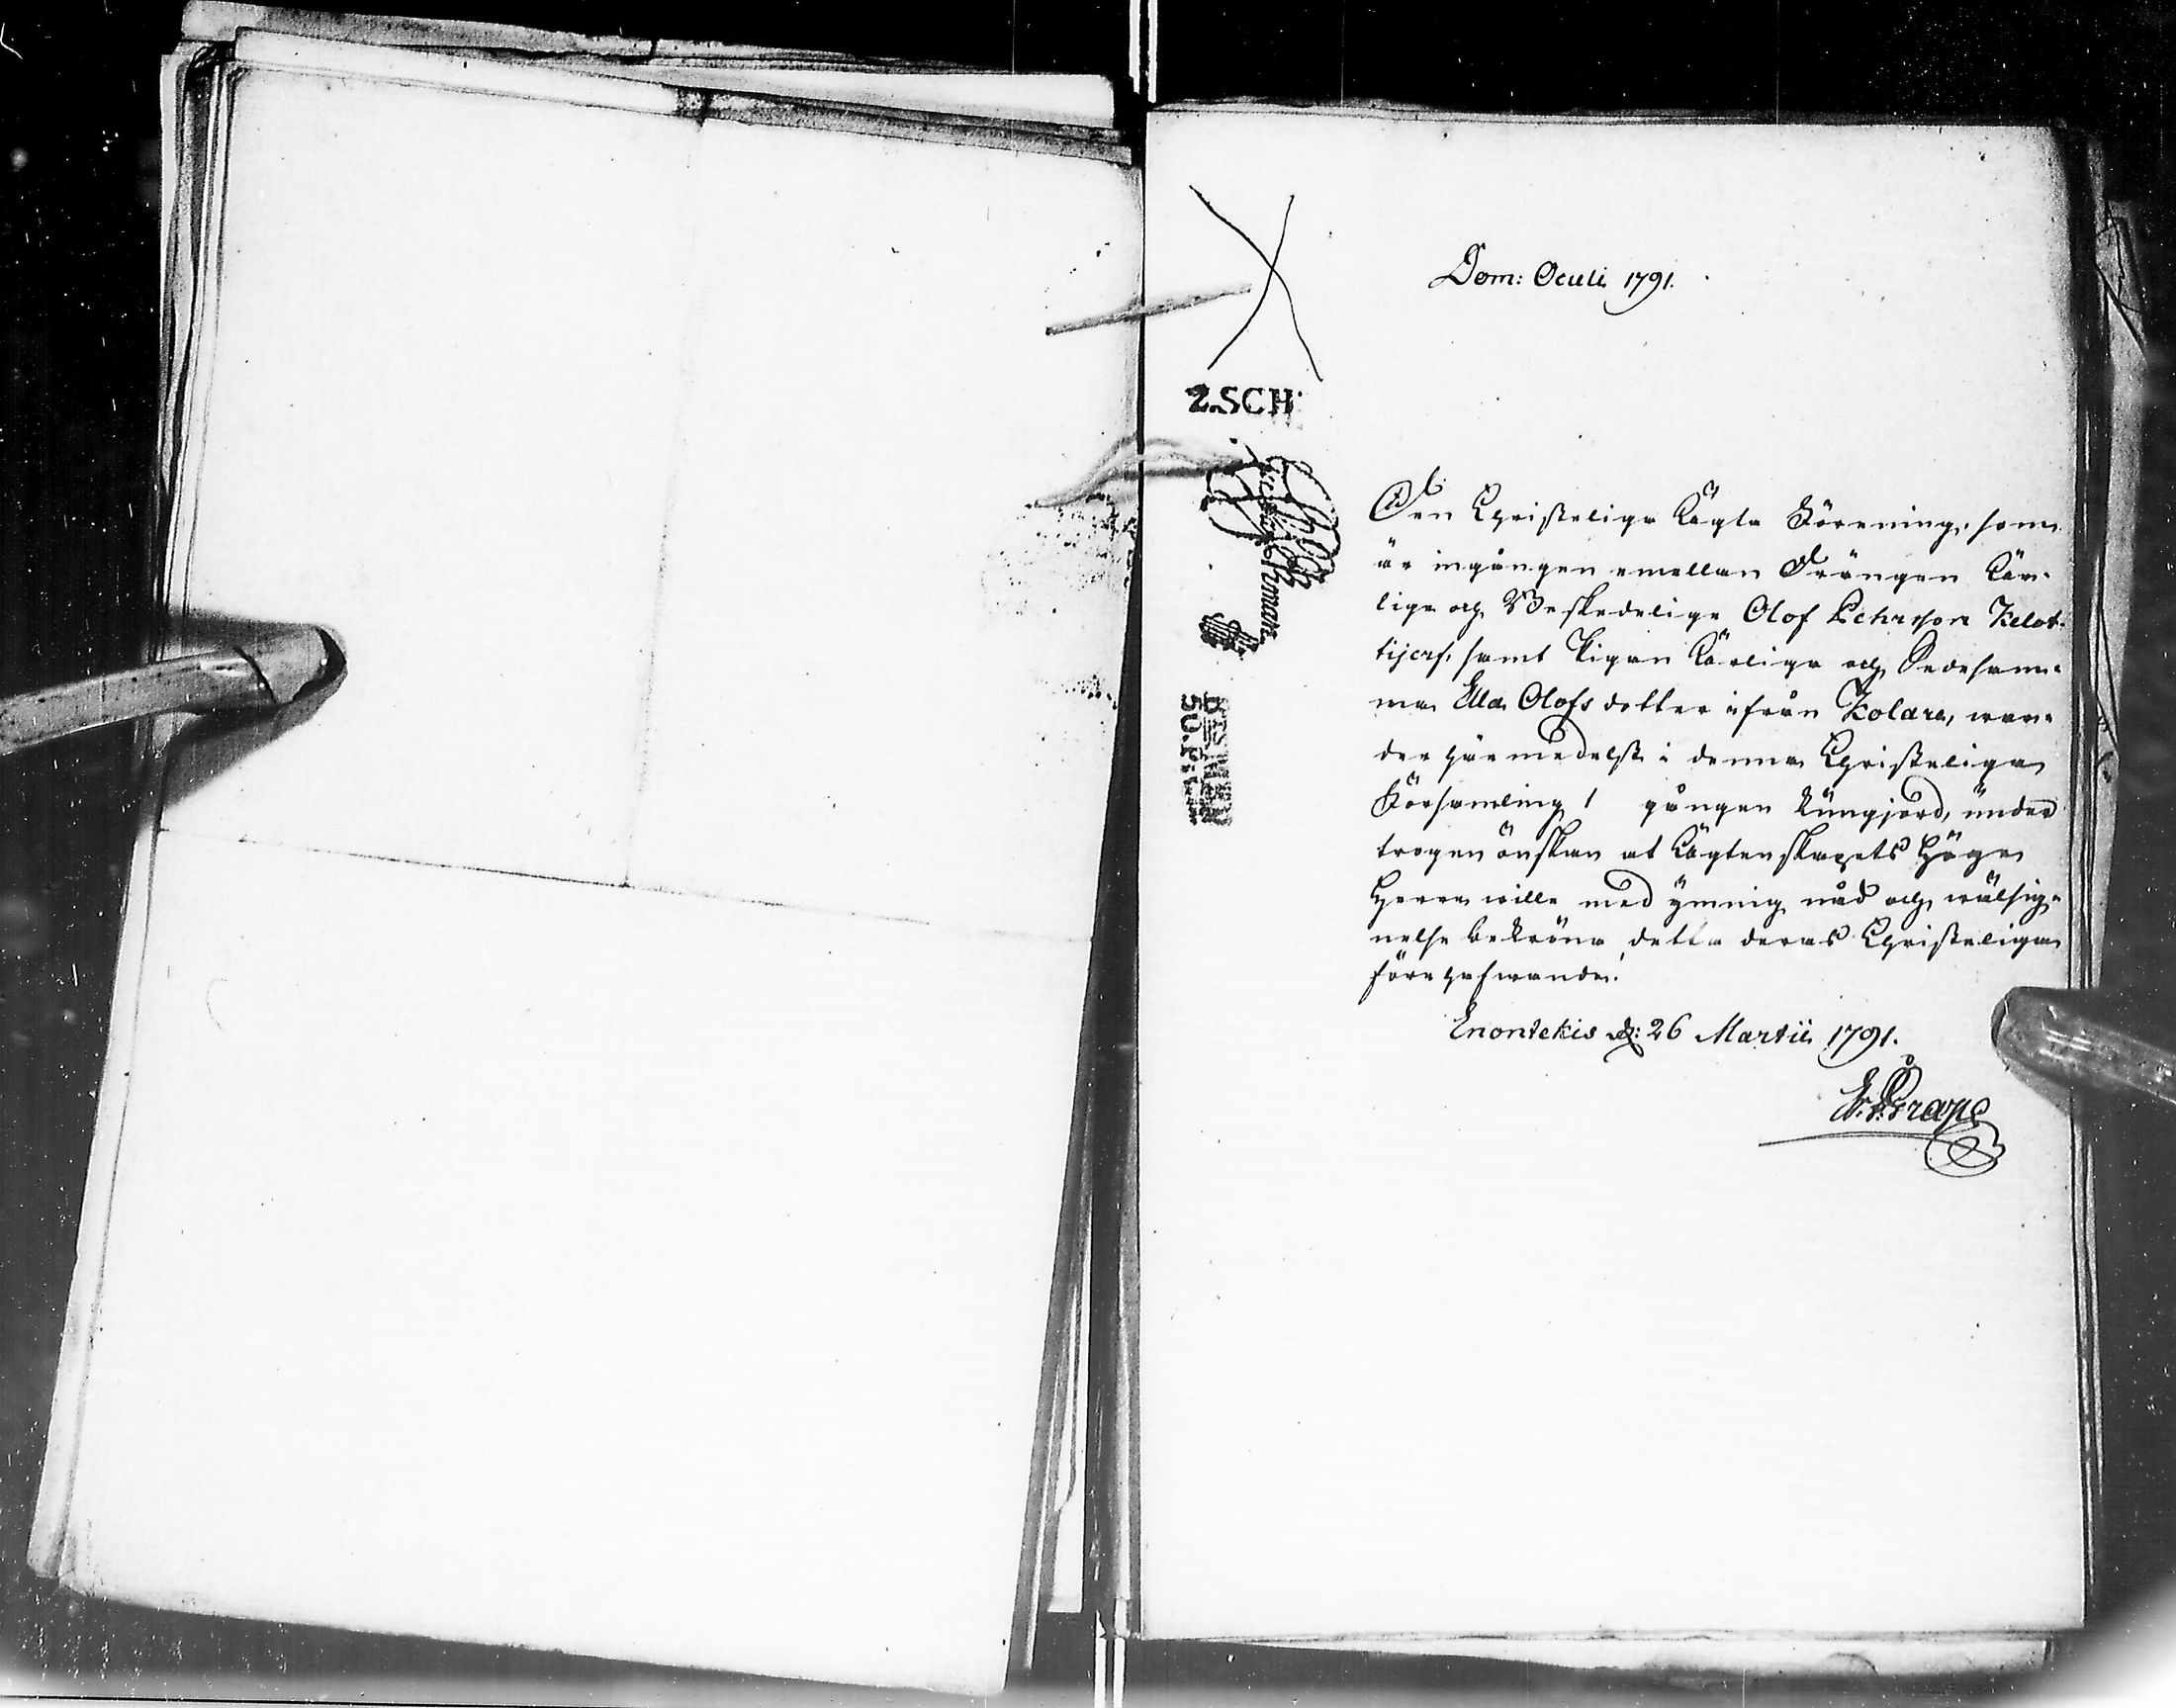 Dom: Oculi 1791.
2.SCH
Den Christeliga Ächta Förening, som
är ingången emellan Drängen Här-
lige och Beskedelige Olof Pehrson Kelot-
tijerf, samt Pigan Ärliga och Sedesam-
ma Ella Olofs dotter ifrån Kolare, war-
der härmedelst i denna Christeliga
Församling 1 gången kungjord, under
trogen önskan at Ächtenskapets Höge
Herre wille med ymnig nåd och wälsig-
nelse bekröna detta deras Christeliga
förehafwande.
Enontekis d: 26 Martii 1791.
E. Grape